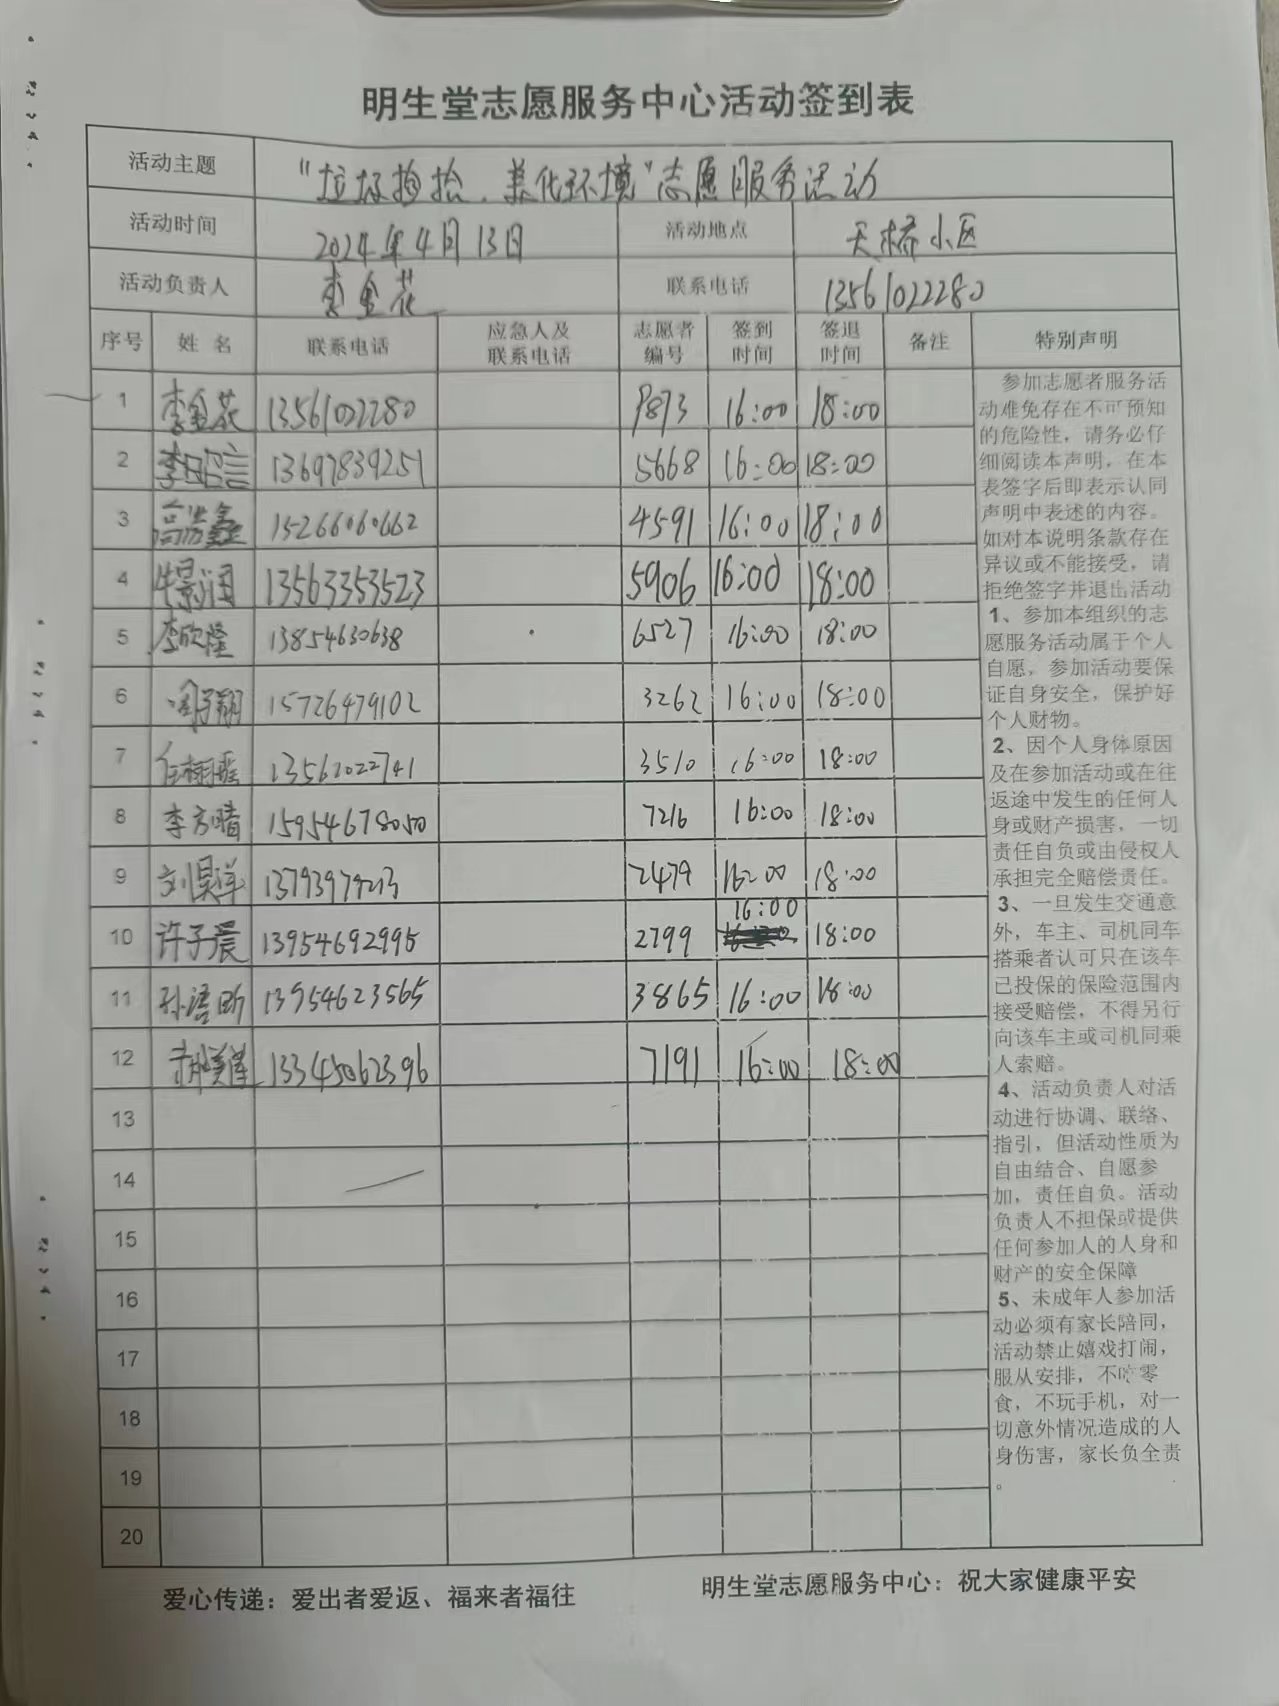 明生堂志愿服务中心活动签到表
活动主题 "垃圾捡拾、美化环境"志愿服务活动
活动时间 2024年4月13日 活动地点 天桥小区
活动负责人 李金花 联系电话 13561022280
序号 姓名 联系电话 应急人及联系电话 志愿者编号 签到时间 签退时间 备注 特别声明
1 李金花 13561022280 9873 16:00 18:00
2 13697839251 5668 16:00 18:00
3 高浩鑫 15266060662 4591 16:00 18:00
4 牛景润 13563353523 5906 16:00 18:00
5 李欣隆 13854630638 6527 16:00 18:00
6 15726479102 3262 16:00 18:00
7 13561022741 3510 16:00 18:00
8 李方晴 15954678050 7216 16:00 18:00
9 刘昊洋 2479 16:00 18:00
10 许子晨 13954692995 2799 16:00 18:00
11 13954623565 3865 16:00 18:00
12 13345062396 7191 16:00 18:00
13
14
15
16
17
18
19
20
参加志愿者服务活
动难免存在不可预知
的危险性，请务必仔
细阅读本声明，在本
表签字后即表示认同
声明中表述的内容。
如对本说明条款存在
异议或不能接受，请
拒绝签字并退出活动
1、参加本组织的志
愿服务活动属于个人
自愿，参加活动要保
证自身安全，保护好
个人财物。
2、因个人身体原因
及在参加活动或在往
返途中发生的任何人
身或财产损害，一切
责任自负或由侵权人
承担完全赔偿责任。
3、一旦发生交通意
外，车主、司机同车
搭乘者认可只在该车
已投保的保险范围内
接受赔偿，不得另行
向该车主或司机同乘
人索赔。
4、活动负责人对活
动进行协调、联络、
指引，但活动性质为
自由结合、自愿参
加，责任自负。活动
负责人不担保或提供
任何参加人的人身和
财产的安全保障
5、未成年人参加活
动必须有家长陪同，
活动禁止嬉戏打闹，
服从安排，不吃零
食，不玩手机，对一
切意外情况造成的人
身伤害，家长负全责
。
爱心传递：爱出者爱返、福来者福往 明生堂志愿服务中心：祝大家健康平安